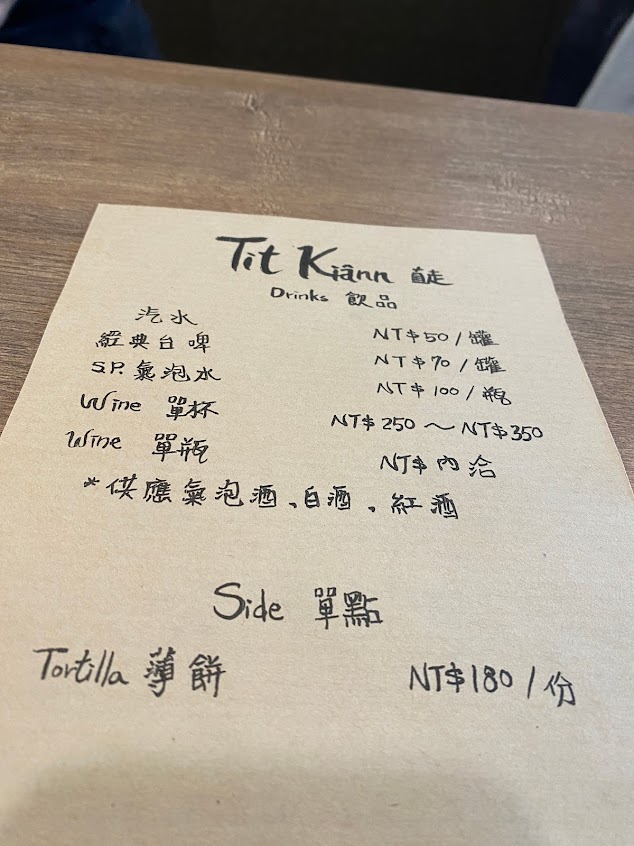 Tit Kiânn 直走
Drinks 飲品
汽水 NT$50/罐
經典台啤 NT$70/罐
S.P. 氣泡水 NT$100/瓶
Wine 單杯 NT$250～NT$350
Wine 單瓶 NT$內洽
*供應氣泡酒、白酒、紅酒
Side 單點
Tortilla 薄餅 NT$180/份